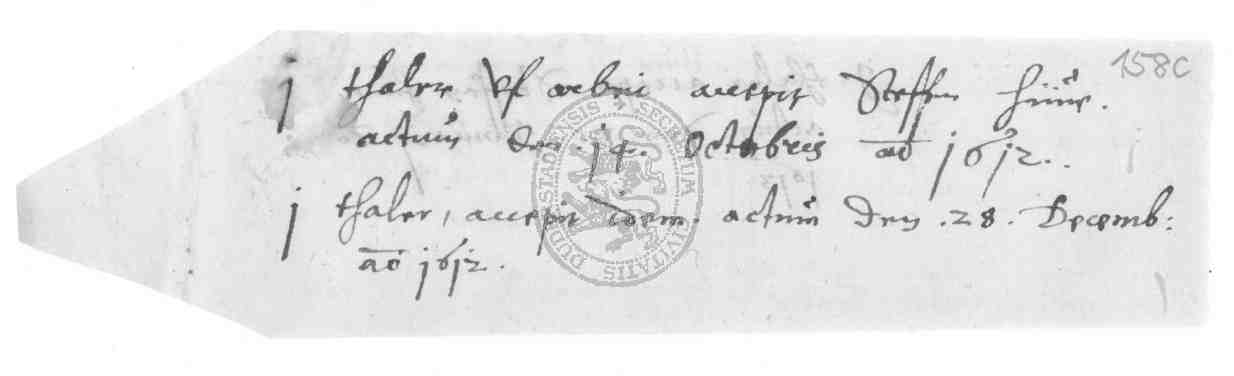 158c
j thaler vf arbeit accepit Steffen
actum den .14. Octobris ao 1612..
j thaler, accepit idem. actum den .28. Decemb:
ao 1612.
SECRETVM CIVITATIS DUDERSTADENSIS